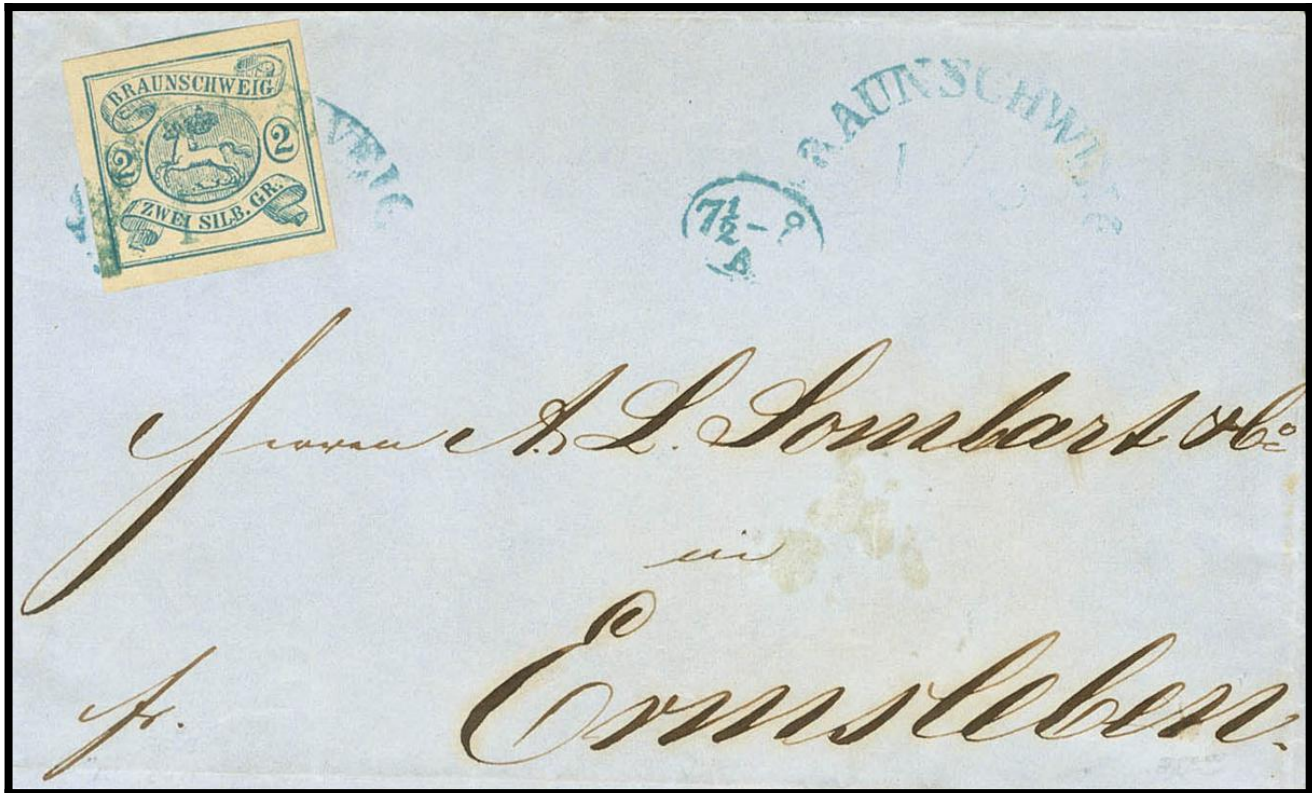 BRAUNSCHWEIG
2 2
ZWEI SILB. GR.
BRAUNSCHWEIG
7½ - 9
A
Herren A. L. Sombart & Co
in
Ermsleben.
fr.